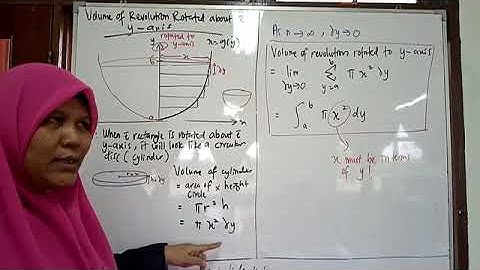 Volume of Revolution Rotated about
y-axis
y rotated to
y-axis
x = g(y)
b
x
δy
When rectangle is rotated about
y-axis, it will look like a circular
disc (cylinder)
Volume of cylinder
= area of circle × height
= πr² h
= π x² δy
As n → ∞, δy → 0
Volume of revolution rotated to y-axis
= lim δy→0 Σ y=a b π x² δy
= ∫ a b π(x²) dy
x must be in terms
of y!